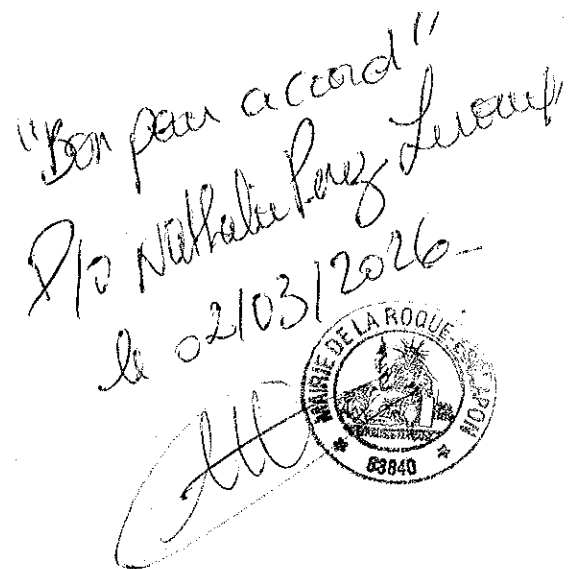 "Bon pour accord"
P/o Nathalie Perez Leroux
le 02/03/2026
MAIRIE DE LA ROQUE-ESCLAPON
83840